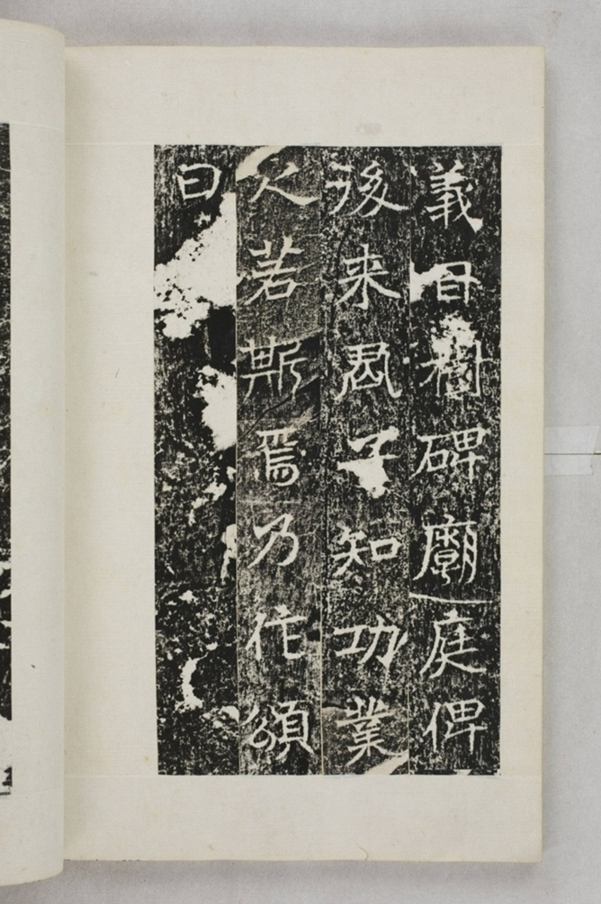 義樹碑廟庭俾
後来君子知功業
之若斯焉乃作頌
曰